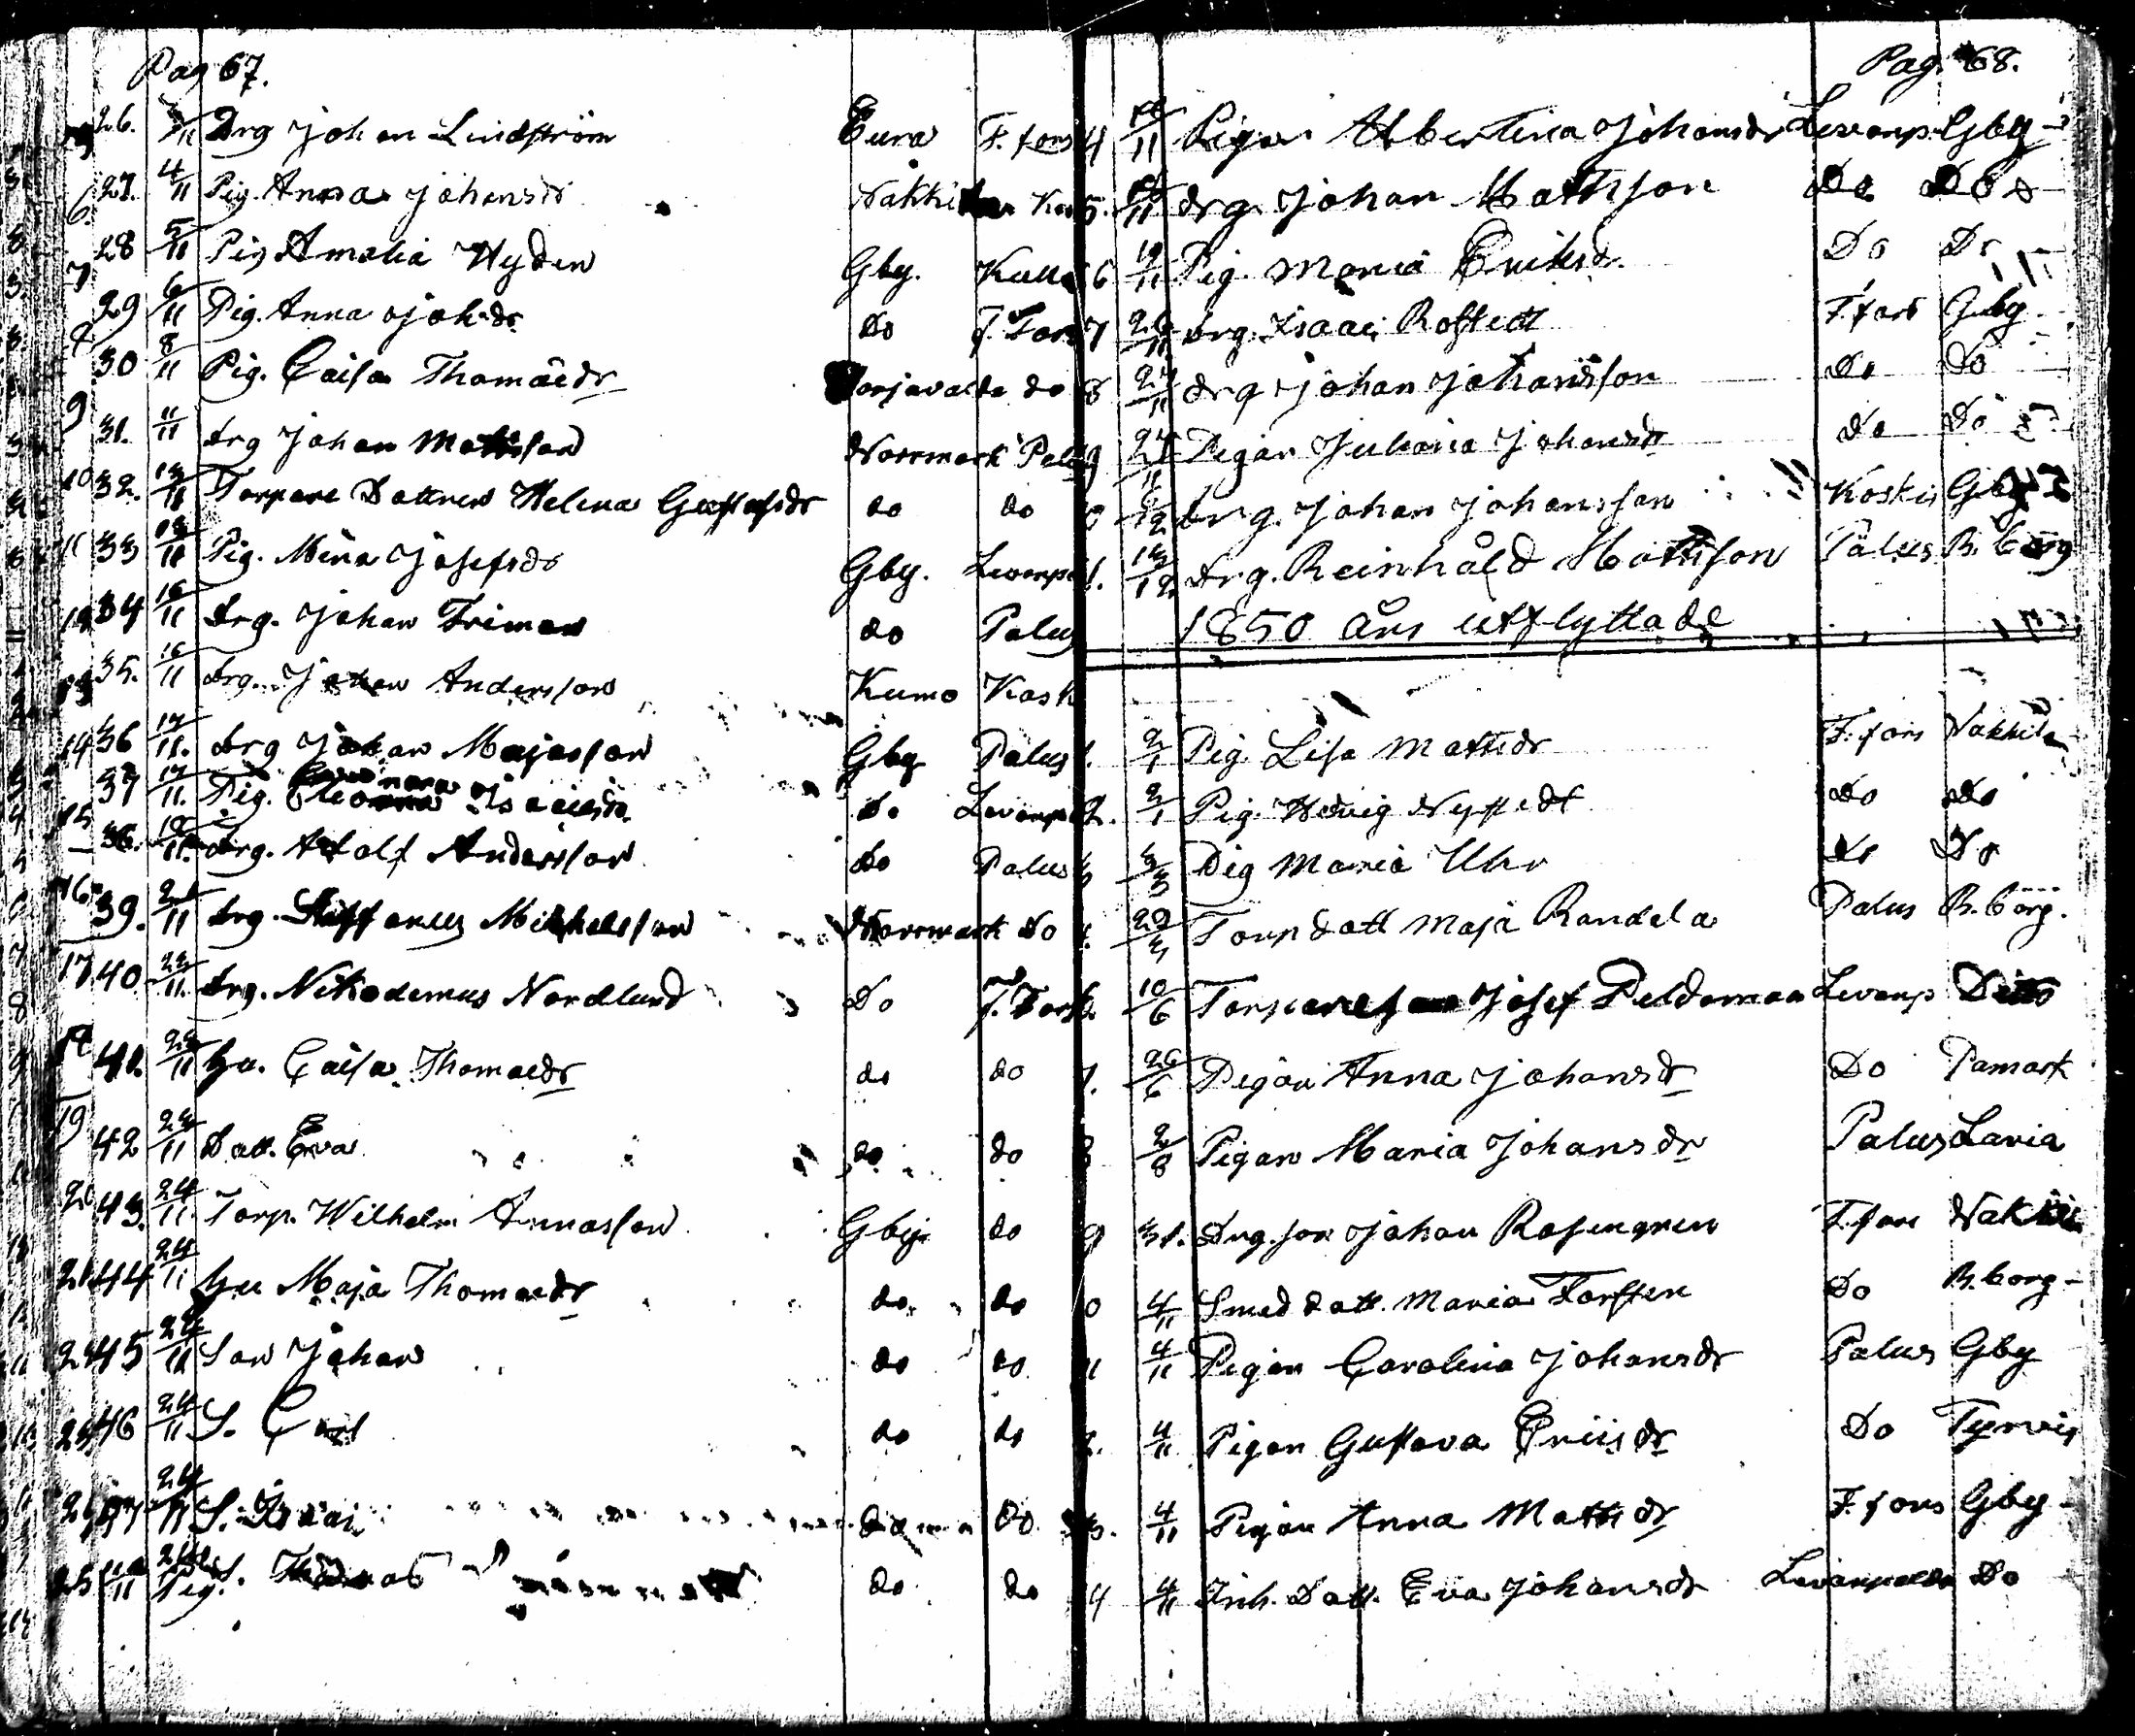 Pag 67.
26. 3/11 Drg Johan Lindström Eura F. fors
27. 4/11 Pig. Anna Johansdr Nakkila
28 5/11 Pig Amalia Hydén Gby. Kull
29 6/11 Pig. Anna Joh.dr do F. Fors
30 8/11 Pig. Caisa Thomaedr do
31. 11/11 drg Johan Mattsson Norrmark Palus
32. 13/11 Torpare Dottren Helena Gustafsdr do do
33 13/11 Pig. Mina Josefsdr Gby. Levanp
34 16/11 drg. Johan Friman do Palus
35. 16/11 drg. Johan Andersson Kumo Kask
36 17/11. drg Johan Majasson Gby Palus
37 17/11. Pig. Isacsdr do Levanp
38. drg. Adolf Andersson do Palus
39. 21/11 drg. Michelsson Norrmark Do
40 22/11. drg. Nikodemus Nordlund Do F. Fors
41. 22/11 hu. Caisa Thomaedr do do
42 22/11 Dott. Eva do do
43. 24/11. Torp. Wilhelm Annasson Gby do
44 24/11 hu Maja Thomaedr do do
45 24/11 Son Johan do do
46 24/11 S. Carl do do
47 24/11 S. Isaac do do
Pig. S. Thomas do do
Pag. 68.
4 11 Pigan Albertina Johansdr Levanp Gby
5. 11 drg. Johan Mattsson Do Do
6 19/11 Pig. Maria Eriksdr. Do Do
7 26/11 drg. Isaac Rostedt F. fors Gby
8 27/11 drg Johan Johansson do do
9 27/11 Pigan Juliana Johansdr do do
0 6/12 drg. Johan Johansson Koskis Gby
1. 13/12 drg. Reinhåld Mattsson Palus B. borg
1850 års utflyttade
1. 2/1 Pig. Lisa Mattsdr F. fors Nakkila
2. 2/1 Pig. Hedvig Nystedt do do
3 3/3 Pig Maria Uhr do Do
4. 22/3 Torp dott Maja Randela Palus B. borg.
10/6 Torparesson Josef Peldoman Levanp Ditto
7. 26/6 Pigan Anna Johansdr Do Pamark
8 2/8 Pigan Maria Johansdr Palus Lavia
9 31. Drg. son Johan Rosengren F. fors Nakkila
0 4/11 Smed dott. Maria Forsten Do B. borg
11 4/11 Pigan Carolina Johansdr Palus Gby
2. 4/11 Pigan Gustava Ericsdr Do Tyrvis
3. 4/11 Pigan Anna Mattsdr F. fors Gby
4 4/11 Inh. Dott. Eva Johansdr Levanpelda Do